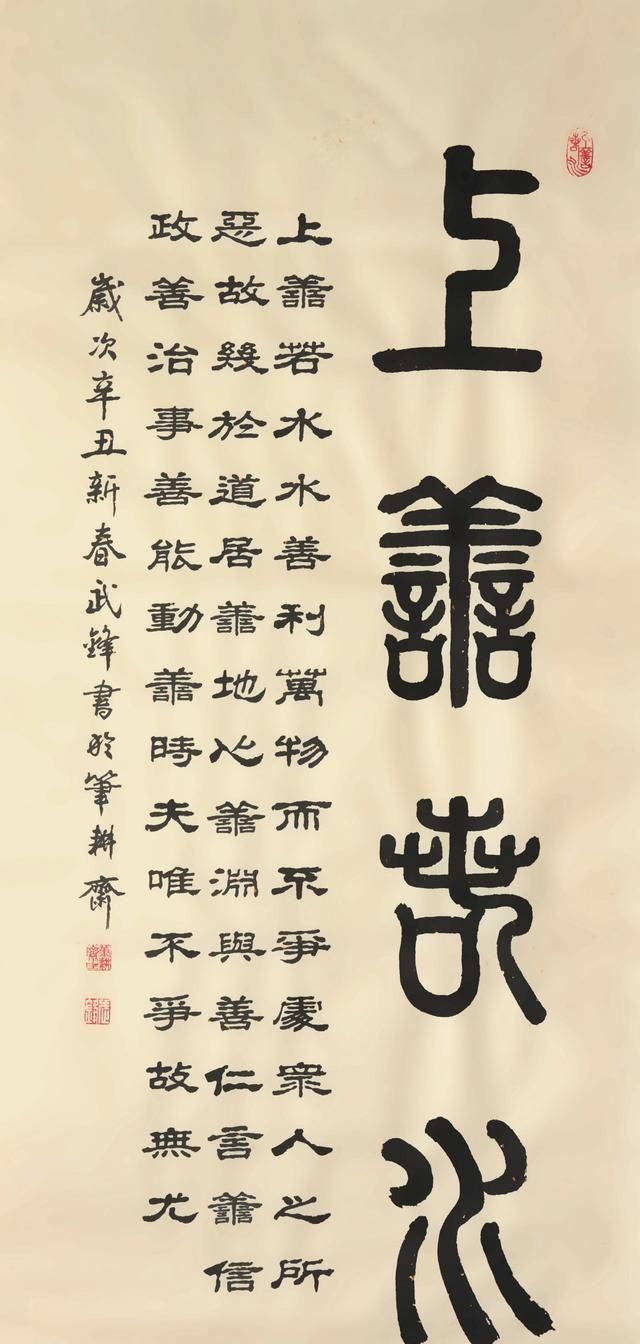 上譱若水
上譱若水水善利萬物而不爭處眾人之所
惡故幾於道居譱地心譱淵與善仁言譱信
政善治事善能動譱時夫唯不爭故無尤
歲次辛丑新春武鋒書於筆耕齋